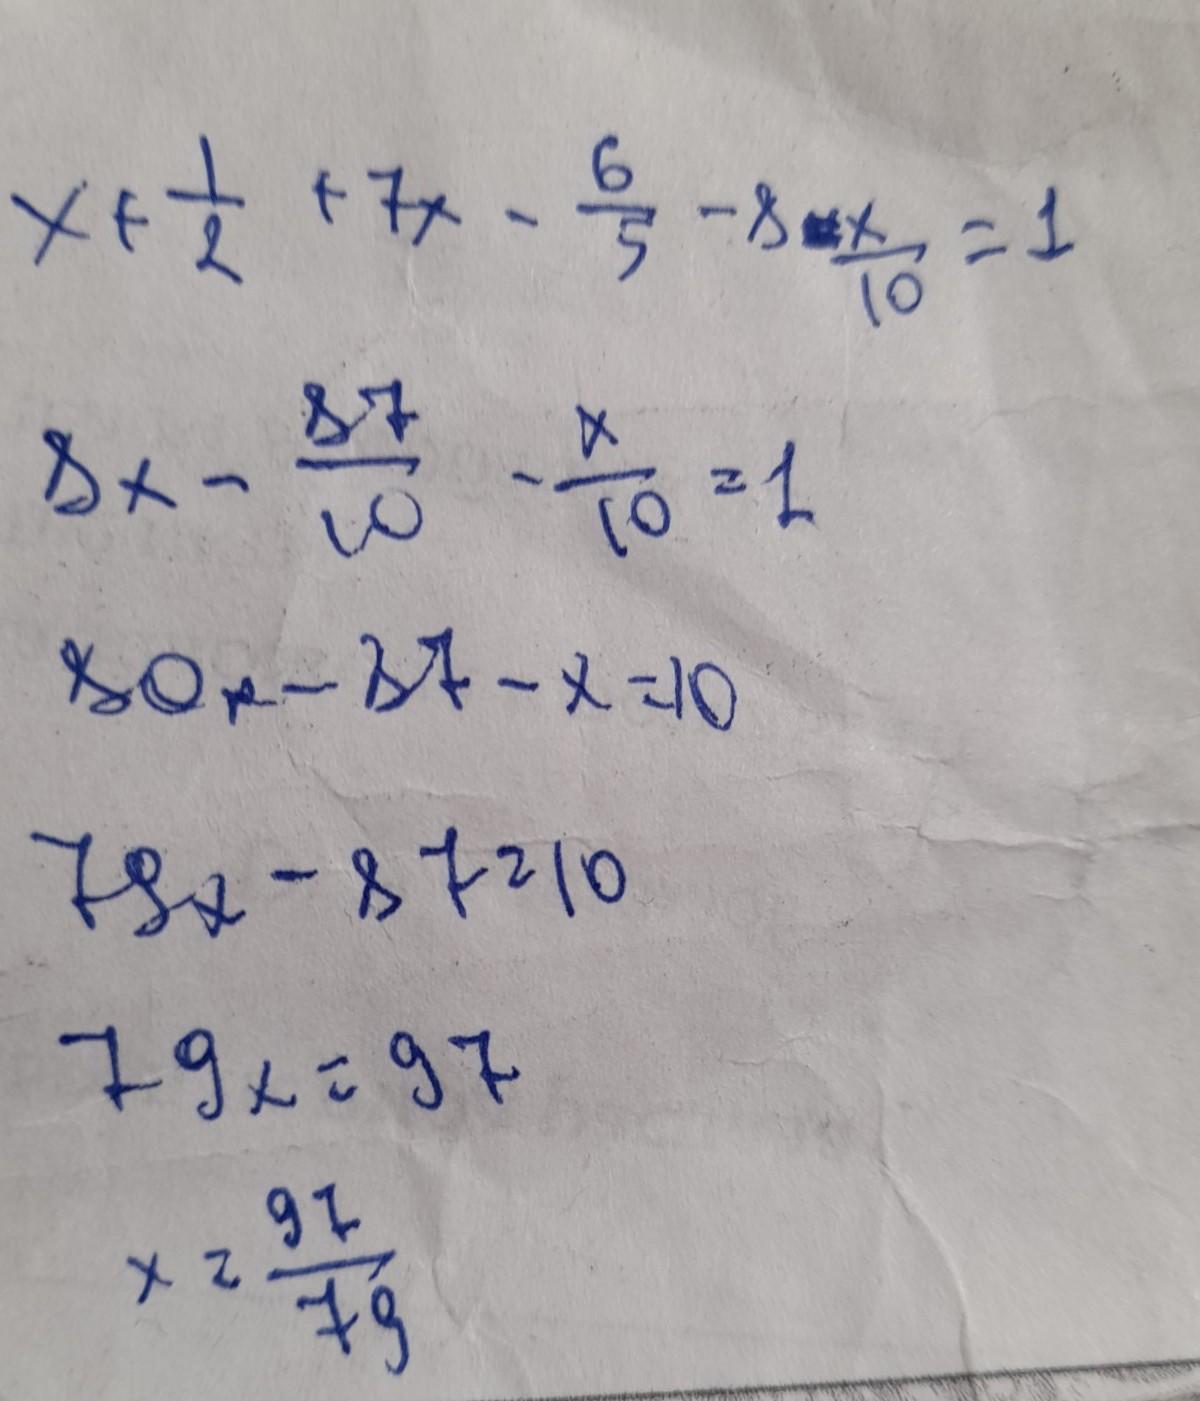 x + 1/2 + 7x - 6/5 - 8 - x/10 = 1
8x - 87/10 - x/10 = 1
80x - 87 - x = 10
79x - 87 = 10
79x = 97
x = 97/79